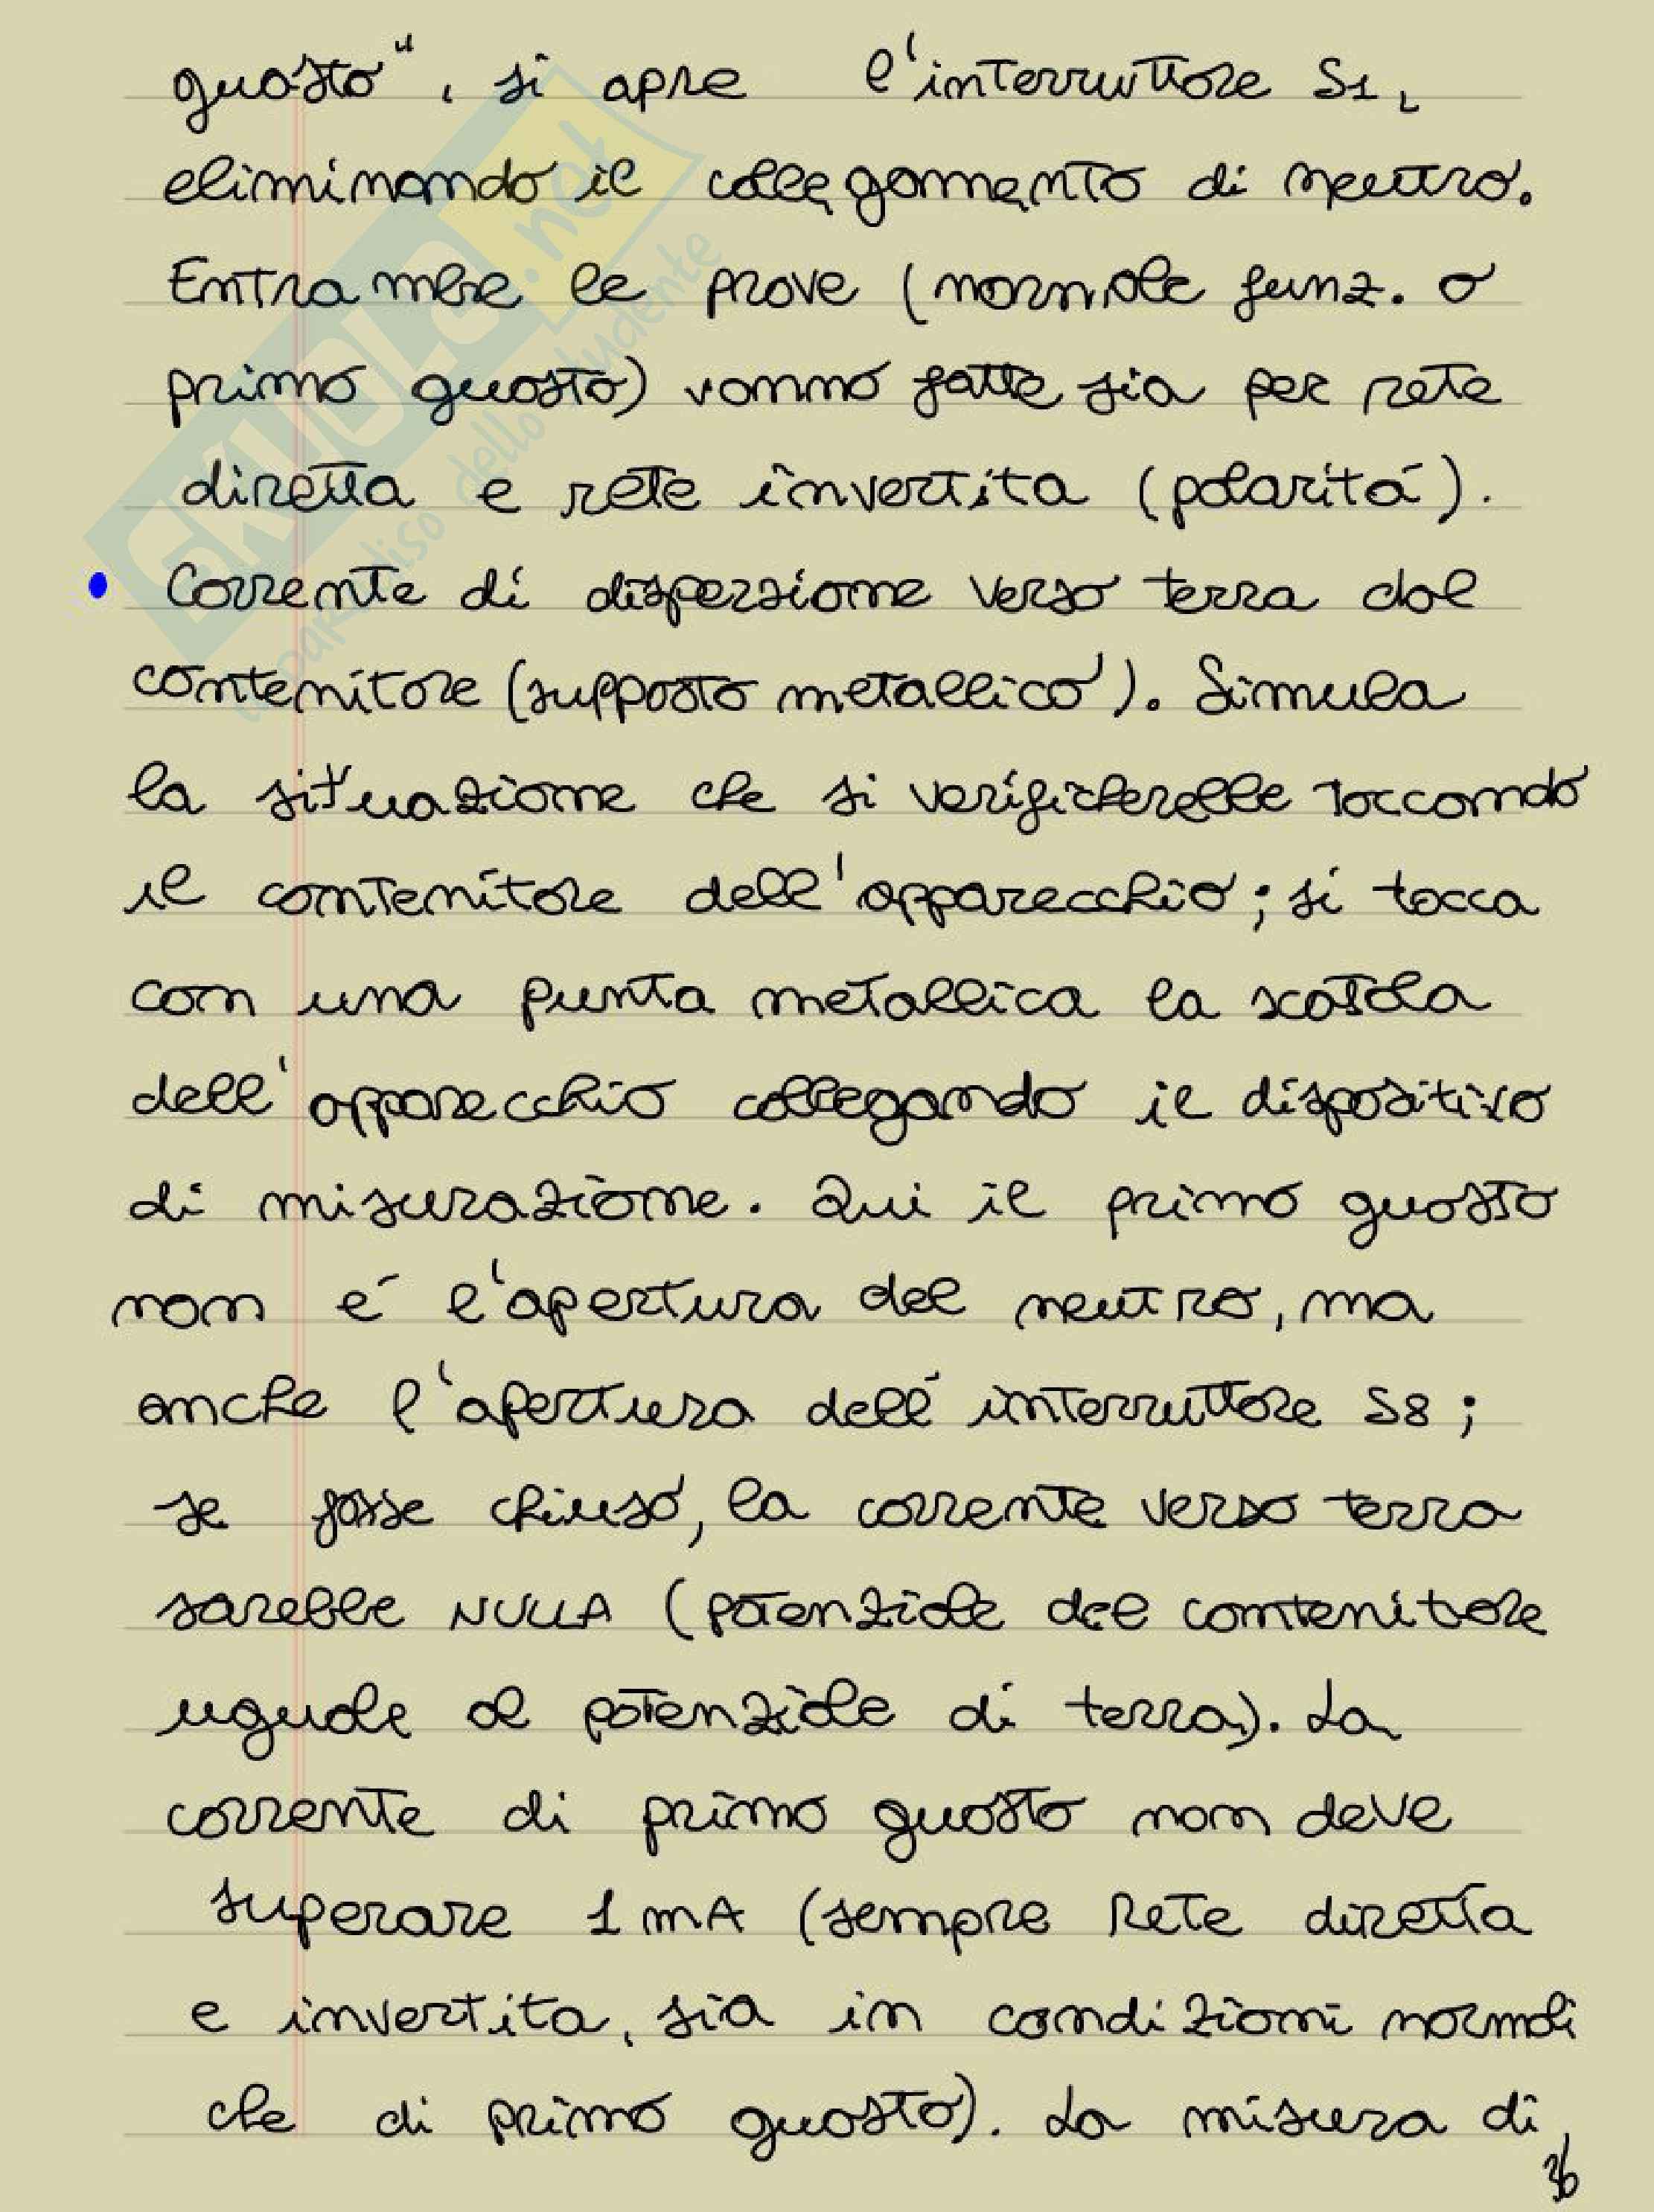 guasto", si apre l'interruttore S1,
eliminando il collegamento di neutro.
Entrambe le prove (normale funz. o
primo guasto) vanno fatte sia per rete
diretta e rete invertita (polaritá).
• Corrente di dispersione verso terra dal
contenitore (supposto metallico). Simula
la situazione che si verificherebbe toccando
il contenitore dell'apparecchio; si tocca
con una punta metallica la scatola
dell'apparecchio collegando il dispositivo
di misurazione. Qui il primo guasto
non é l'apertura del neutro, ma
anche l'apertura dell'interruttore S8;
se fosse chiuso, la corrente verso terra
sarebbe NULLA (potenziale del contenitore
uguale al potenziale di terra). La
corrente di primo guasto non deve
superare 1mA (sempre rete diretta
e invertita, sia in condizioni normali
che di primo guasto). La misura di
36
SKUOLA.net
il paradiso dello studente